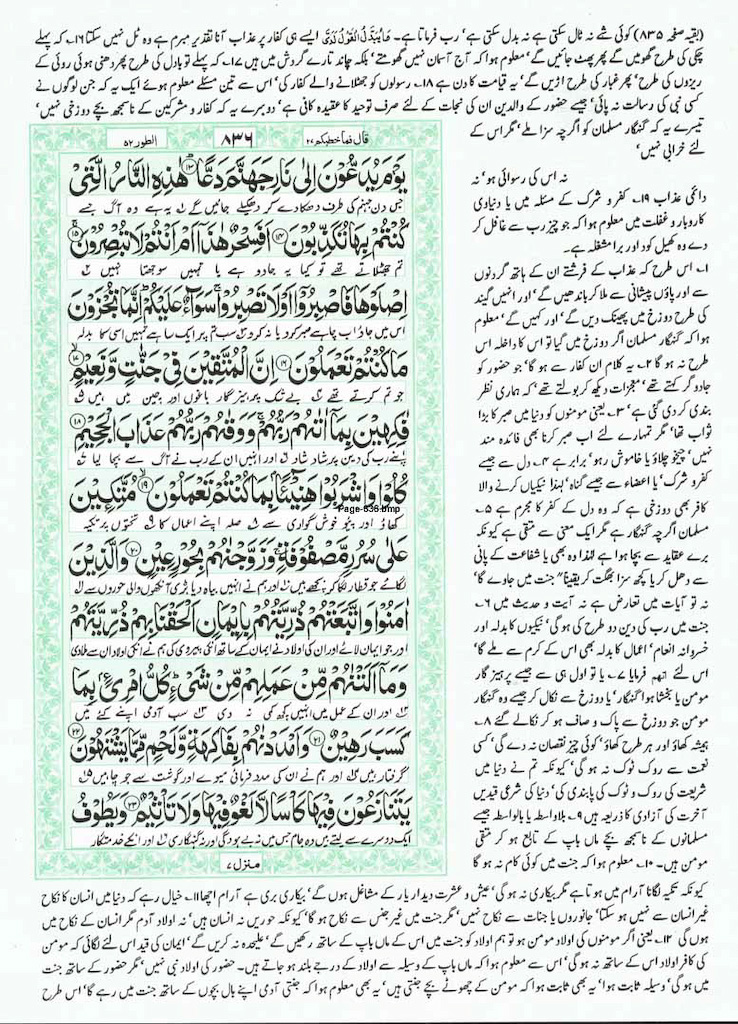 (بقیہ صفحہ ۸۳۵) کوئی شے نہ ٹال سکتی ہے نہ بدل سکتی ہے' رب فرماتا ہے۔ مَا یُبَدَّلُ الْقَوْلُ لَدَیَّ ایسے ہی کفار پر عذاب آنا تقدیر مبرم ہے وہ ٹل نہیں سکتا ۱۶۔ کہ پہلے
چکی کی طرح گھومیں گے پھر پھٹ جائیں گے' معلوم ہوا کہ آج آسمان نہیں گھومتے' بلکہ چاند تارے گردش میں ہیں ۱۷۔ کہ پہلے تو بادل کی طرح پھر دھنی ہوئی روئی کے
ریزوں کی طرح' پھر غبار کی طرح اڑیں گے' یہ قیامت کا دن ہے ۱۸۔ رسولوں کو جھٹلانے والے کفار کی' اس سے تین مسئلے معلوم ہوئے ایک یہ کہ جن لوگوں نے
کسی نبی کی رسالت نہ پائی' جیسے حضور کے والدین ان کی نجات کے لئے صرف توحید کا عقیدہ کافی ہے' دوسرے یہ کہ کفار و مشرکین کے ناسمجھ بچے دوزخی نہیں'
تیسرے یہ کہ گنہگار مسلمان کو اگرچہ سزا ملے' مگر اس کے
لئے خرابی نہیں'
نہ اس کی رسوائی ہو' نہ
دائمی عذاب ۱۹۔ کفر و شرک کے مسئلہ میں یا دنیاوی
کاروبار و غفلت میں معلوم ہوا کہ جو چیز رب سے غافل کر
دے وہ کھیل کود اور برا مشغلہ ہے۔
۱۔ اس طرح کہ عذاب کے فرشتے ان کے ہاتھ گردنوں
سے اور پاؤں پیشانی سے ملا کر باندھیں گے' اور انہیں گیند
کی طرح دوزخ میں پھینک دیں گے' اور کہیں گے' معلوم
ہوا کہ گنہگار مسلمان اگر دوزخ میں گیا تو اس کا داخلہ اس
طرح نہ ہو گا ۲۔ یہ کلام ان کفار سے ہو گا' جو حضور کو
جادو گر کہتے تھے' معجزات دیکھ کر بولتے تھے' کہ ہماری نظر
بندی کر دی گئی ہے' ۳۔ یعنی مومنوں کو دنیا میں صبر کا بڑا
ثواب تھا' مگر تمہارے لئے اب صبر کرنا بھی فائدہ مند
نہیں' چیخو چلاؤ یا خاموش رہو' برابر ہے ۴۔ دل سے جیسے
کفر و شرک' یا اعضاء سے جیسے گناہ' لہذا نیکیاں کرنے والا
کافر بھی دوزخی ہے کہ وہ دل کے کفر کا مجرم ہے ۵۔
مسلمان اگرچہ گنہگار ہے مگر ایک معنی سے متقی ہے کیونکہ
برے عقاید سے بچا ہوا ہے لہذا وہ بھی یا شفاعت کے پانی
سے دھل کر یا کچھ سزا بھگت کر یقیناً" جنت میں جاوے گا'
نہ تو آیات میں تعارض ہے نہ آیت و حدیث میں ۶۔
جنت میں رب کی دین دو طرح کی ہو گی' نیکیوں کا بدلہ اور
خسروانہ انعام' اعمال کا بدلہ بھی اس کے کرم سے ملے گا'
اس لئے اٰتٰھم فرمایا ۷۔ یا تو اول ہی سے جیسے پرہیز گار
مومن یا بخشا ہوا گنہگار' یا دوزخ سے نکال کر جیسے وہ گنہگار
مومن جو دوزخ سے پاک و صاف ہو کر نکالے گئے ۸۔
ہمیشہ کھاؤ اور ہر طرح کھاؤ' کوئی چیز نقصان نہ دے گی' کسی
نعمت سے روک ٹوک نہ ہو گی' کیونکہ تم نے دنیا میں
شریعت کی روک و ٹوک کی پابندی کی' دنیا کی شرعی قیدیں
آخرت کی آزادی کا ذریعہ ہیں ۹۔ بلاواسطہ یا بالواسطہ جیسے
مسلمانوں کے ناسمجھ بچے ماں باپ کے تابع ہو کر متقی
مومن ہیں۔ ۱۰۔ معلوم ہوا کہ جنت میں کوئی کام نہ ہو گا
قال فما خطبكم ۲۷ ۸۳۶ الطور ۵۲
یَوْمَ یُدَعُّوْنَ اِلٰی نَارِ جَهَنَّمَ دَعًّا ﴿۱۳﴾ هٰذِهِ النَّارُ الَّتِیْ
جس دن جہنم کی طرف دھکا دے کر دھکیلے جائیں گے یہ ہے وہ آگ جسے
كُنْتُمْ بِهَا تُكَذِّبُوْنَ ﴿۱۴﴾ اَفَسِحْرٌ هٰذَاۤ اَمْ اَنْتُمْ لَا تُبْصِرُوْنَ ﴿۱۵﴾
تم جھٹلاتے تھے تو کیا یہ جادو ہے یا تمہیں سوجھتا نہیں
اِصْلَوْهَا فَاصْبِرُوْۤا اَوْ لَا تَصْبِرُوْا سَوَآءٌ عَلَیْكُمْ اِنَّمَا تُجْزَوْنَ
اس میں جاؤ اب چاہے صبر کرو یا نہ کرو سب تم پر ایک سا ہے تمہیں اسی کا بدلہ
مَا كُنْتُمْ تَعْمَلُوْنَ ﴿۱۶﴾ اِنَّ الْمُتَّقِیْنَ فِیْ جَنّٰتٍ وَّ نَعِیْمٍ ﴿۱۷﴾
جو تم کرتے تھے بے شک پرہیزگار باغوں اور چین میں ہیں
فٰكِهِیْنَ بِمَاۤ اٰتٰىهُمْ رَبُّهُمْ وَ وَقٰىهُمْ رَبُّهُمْ عَذَابَ الْجَحِیْمِ ﴿۱۸﴾
اپنے رب کی دین پر شاد شاد اور انہیں ان کے رب نے آگ سے بچا لیا
كُلُوْا وَ اشْرَبُوْا هَنِیْٓـًٔۢا بِمَا كُنْتُمْ تَعْمَلُوْنَ ﴿۱۹﴾ مُتَّكِـِٕیْنَ
Page-836.bmp
کھاؤ اور پیو خوش گواری سے صلہ اپنے اعمال کا تختوں پر تکیہ
عَلٰی سُرُرٍ مَّصْفُوْفَةٍ وَ زَوَّجْنٰهُمْ بِحُوْرٍ عِیْنٍ ﴿۲۰﴾ وَ الَّذِیْنَ
لگائے جو قطار لگا کر بچھے ہیں اور ہم نے انہیں بیاہ دیا بڑی آنکھوں والی حوروں سے
اٰمَنُوْا وَ اتَّبَعَتْهُمْ ذُرِّیَّتُهُمْ بِاِیْمَانٍ اَلْحَقْنَا بِهِمْ ذُرِّیَّتَهُمْ
اور جو ایمان لائے اور ان کی اولاد نے ایمان کے ساتھ انکی پیروی کی ہم نے انکی اولاد ان سے ملا دی
وَ مَاۤ اَلَتْنٰهُمْ مِّنْ عَمَلِهِمْ مِّنْ شَیْءٍ كُلُّ امْرِئٍۭ بِمَا
اور ان کے عمل میں انہیں کچھ کمی نہ دی سب آدمی اپنے کئے میں
كَسَبَ رَهِیْنٌ ﴿۲۱﴾ وَ اَمْدَدْنٰهُمْ بِفَاكِهَةٍ وَّ لَحْمٍ مِّمَّا یَشْتَهُوْنَ ﴿۲۲﴾
گرفتار ہیں اور ہم نے ان کی مدد فرمائی میوے اور گوشت سے جو چاہیں
یَتَنَازَعُوْنَ فِیْهَا كَاْسًا لَّا لَغْوٌ فِیْهَا وَ لَا تَاْثِیْمٌ ﴿۲۳﴾ وَ یَطُوْفُ
ایک دوسرے سے لیتے ہیں وہ جام جس میں نہ بے ہودگی اور نہ گنہگاری اور انکے خدمتگار
منزل ۷
کیونکہ تکیہ لگانا آرام میں ہوتا ہے مگر بیکاری نہ ہو گی' عیش و عشرت دیدار یار کے مشاغل ہوں گے' بیکاری بری ہے آرام اچھا ۱۱۔ خیال رہے کہ دنیا میں انسان کا نکاح
غیر انسان سے نہیں ہو سکتا' جانوروں یا جنات سے نکاح نہیں' مگر جنت میں غیر جنس سے نکاح ہو گا' کیونکہ حوریں نہ انسان ہیں' نہ اولاد آدم مگر انسان کے نکاح میں
ہوں گی ۱۲۔ یعنی اگر مومنوں کی اولاد مومن ہو تو ہم اولاد کو جنت میں اس کے ماں باپ کے ساتھ رکھیں گے' علیحدہ نہ کریں گے' ایمان کی قید اس لئے لگائی کہ مومن
کی کافر اولاد اس کے ساتھ نہ ہو گی' اس سے معلوم ہوا کہ ماں باپ کے وسیلہ سے اولاد کے درجے بلند ہو جاتے ہیں۔ حضور کی اولاد نبی نہیں' مگر حضور کے ساتھ جنت
میں ہو گی' وسیلہ ثابت ہوا' یہ بھی ثابت ہوا کہ مومن کے چھوٹے بچے جنتی ہیں' یہ بھی معلوم ہوا کہ جنتی آدمی اپنے بال بچوں کے ساتھ جنت میں رہے گا' اس طرح